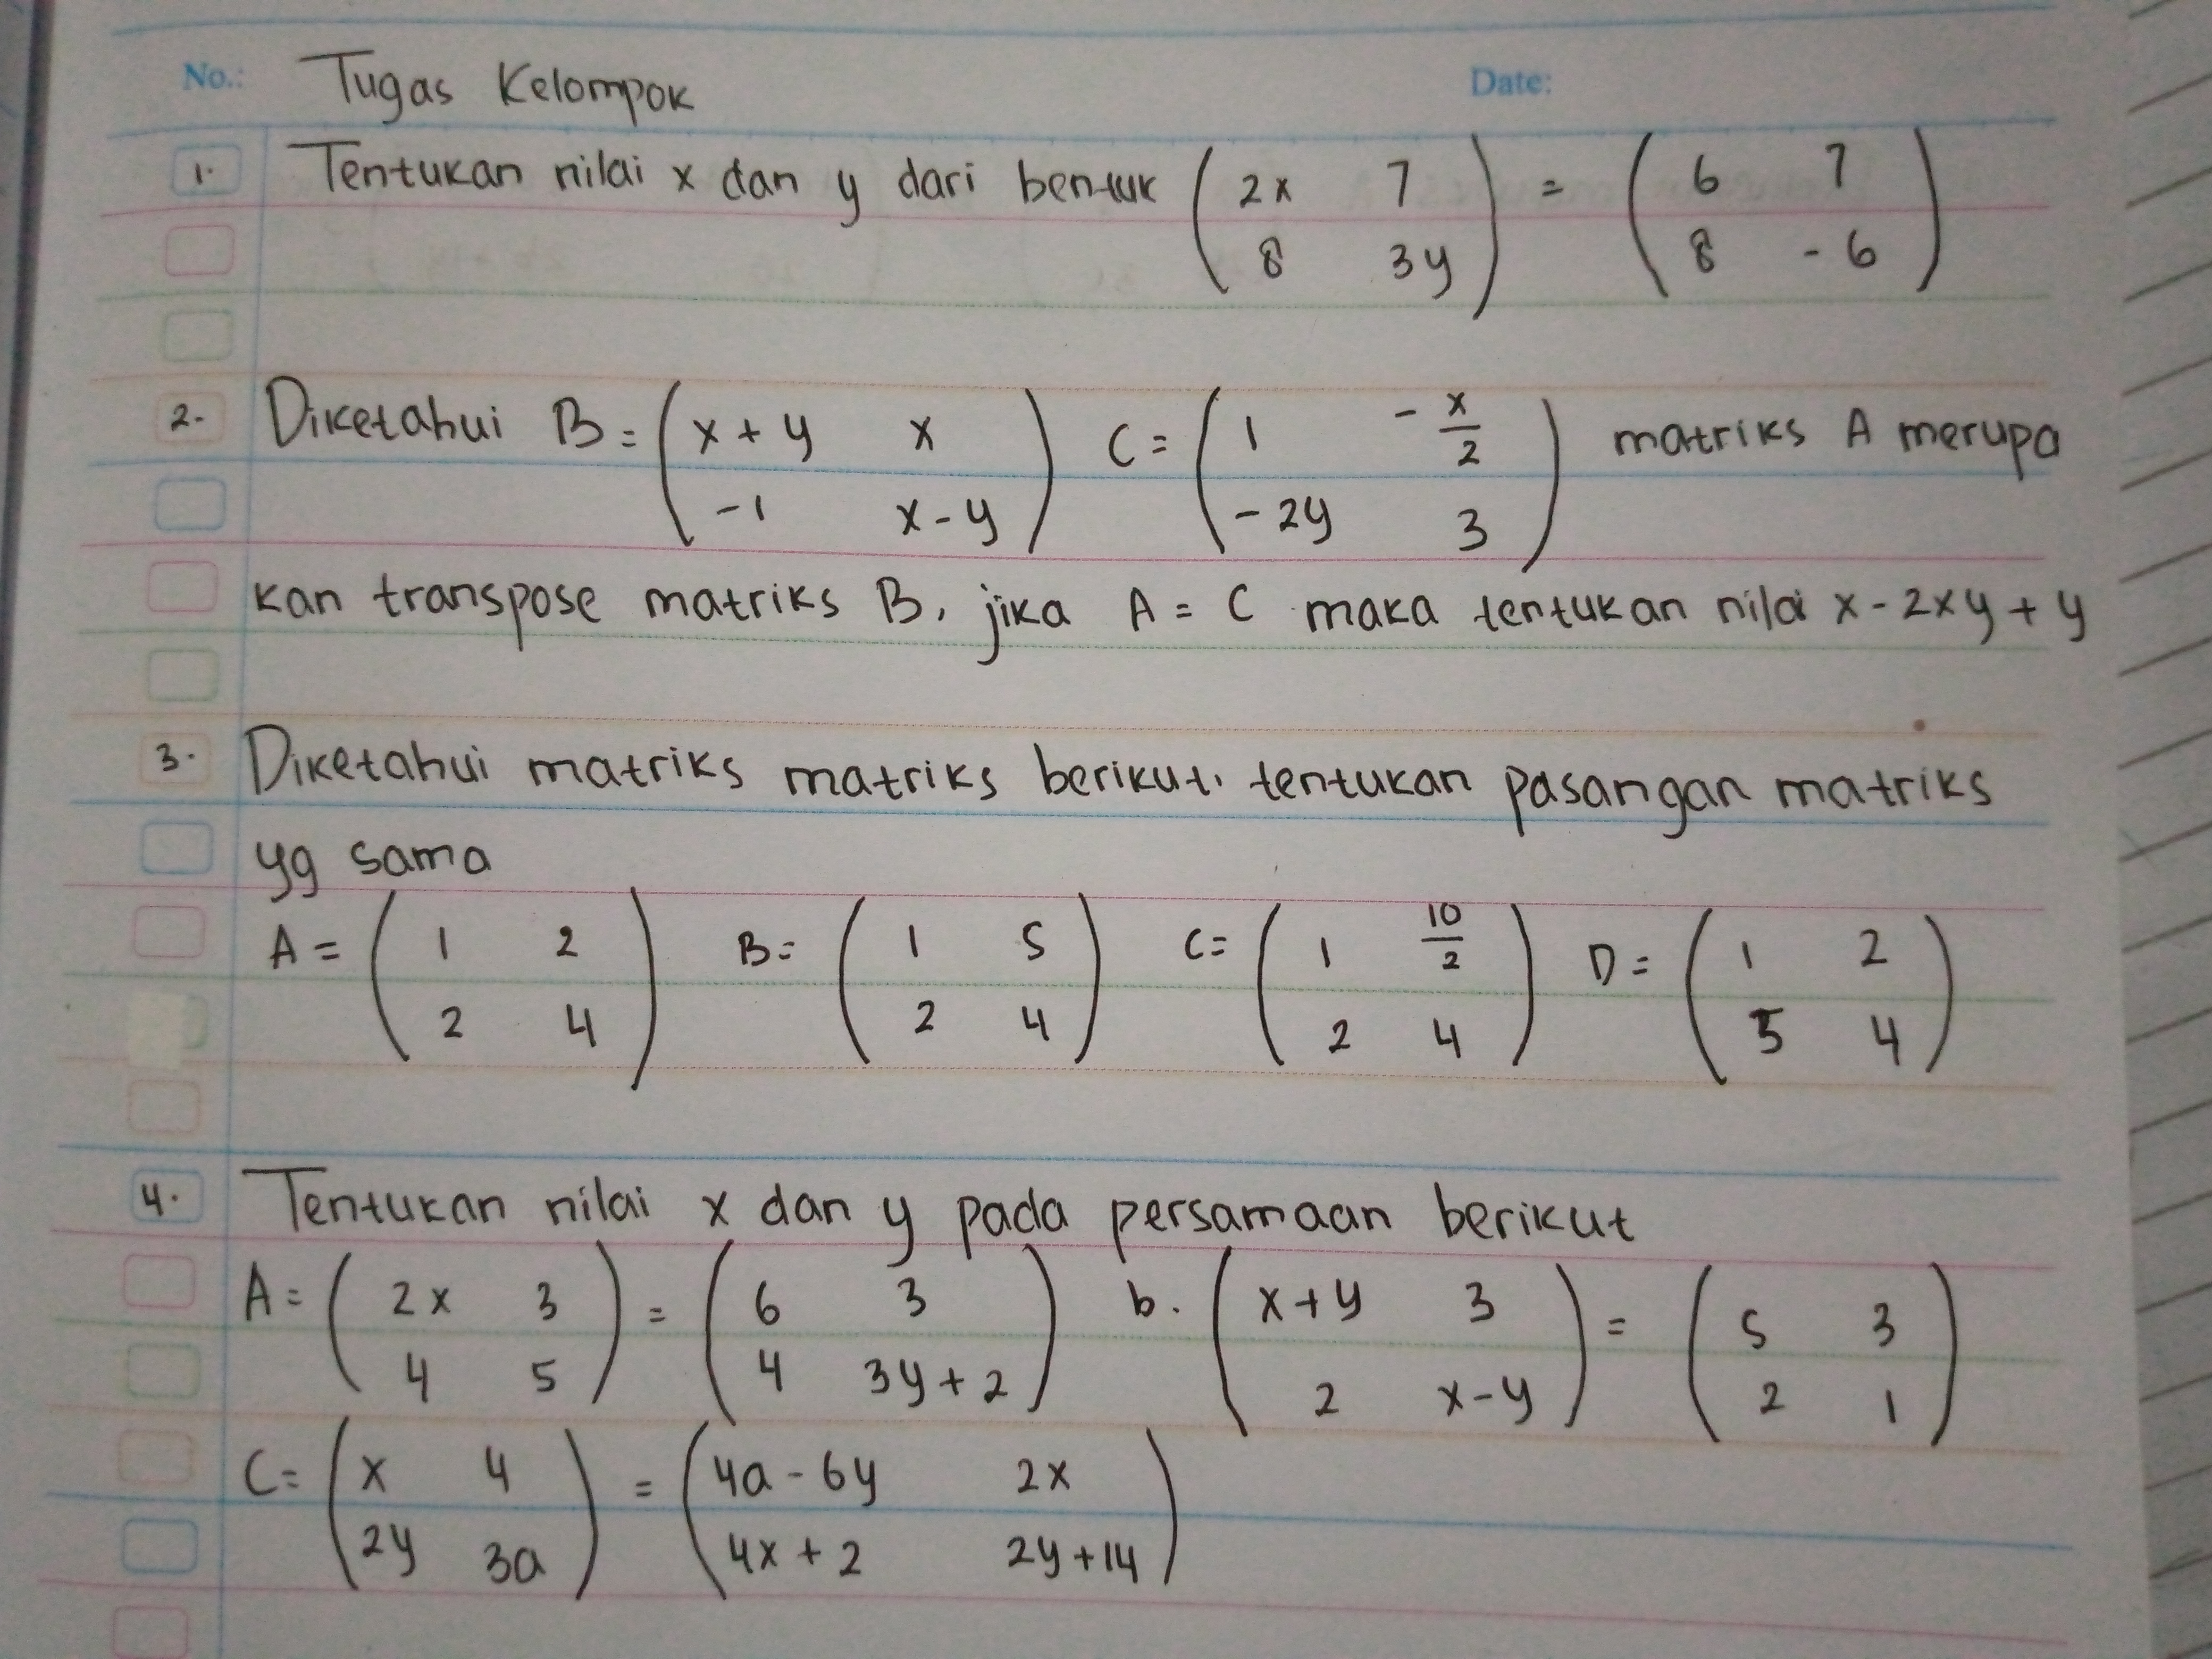 No.: Tugas Kelompok Date:
1. Tentukan nilai x dan y dari bentuk (2x 7 8 3y) = (6 7 8 -6)
2. Diketahui B = (x + y x -1 x - y) C = (1 -x/2 -2y 3) matriks A merupa
kan transpose matriks B, jika A = C maka tentukan nilai x - 2xy + y
3. Diketahui matriks matriks berikut, tentukan pasangan matriks
yg sama
A = (1 2 2 4) B = (1 5 2 4) C = (1 10/2 2 4) D = (1 2 5 4)
4. Tentukan nilai x dan y pada persamaan berikut
A = (2x 3 4 5) = (6 3 4 3y + 2) b. (x + y 3 2 x - y) = (5 3 2 1)
C = (x 4 2y 3a) = (4a - 6y 2x 4x + 2 2y + 14)